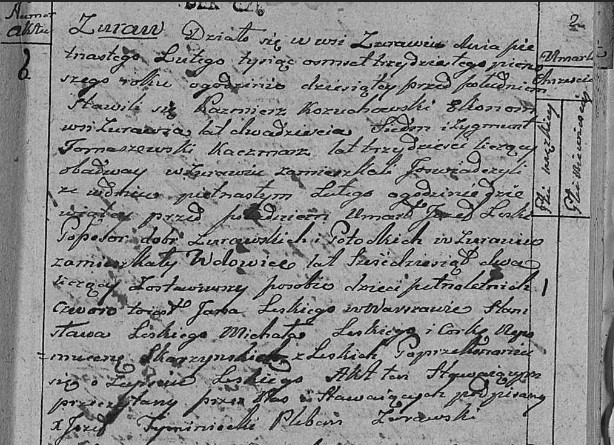 Numer
aktu
6
2
Umarli
Chrześci
Płci męzkiey
Płci Niewieściey
1
Żuraw. Działo się w wsi Żurawiu dnia pię
tnastego Lutego tysiąc osmset trzydziestego pierw
szego roku o godzinie dziesiątey przed południem
Stawili się Kazmierz Kozuchowski Ekonom
wsi Żurawia lat dwadzieścia Siedm i Zygmunt
Tomaszewski Kaczmarz lat trzydzieści liczący
obadway w Żurawiu zamieszkali
że w dniu pietnastym Lutego o godzinie dzie
wiątey przed południem Umarł Jozef Leski
Possesor dobr Żurawskich i Potockich w Żurawiu
zamieszkały Wdowiec lat sześdziesiąt dwa
liczący Zostawiwszy po sobie dzieci pełnoletnich
Czworo to iest Jana Leskiego w Warszawie Stani
sława Leskiego Michała Leskiego i Corkę Nepo
mucenę Skarzynską z Leskich Po przekonaniu
się o Zeyściu Leskiego Akt ten Stawaiącym
przeczytany przez Nas i Stawaiących podpisany
X Jozef Tyminiecki Pleban Żurawski